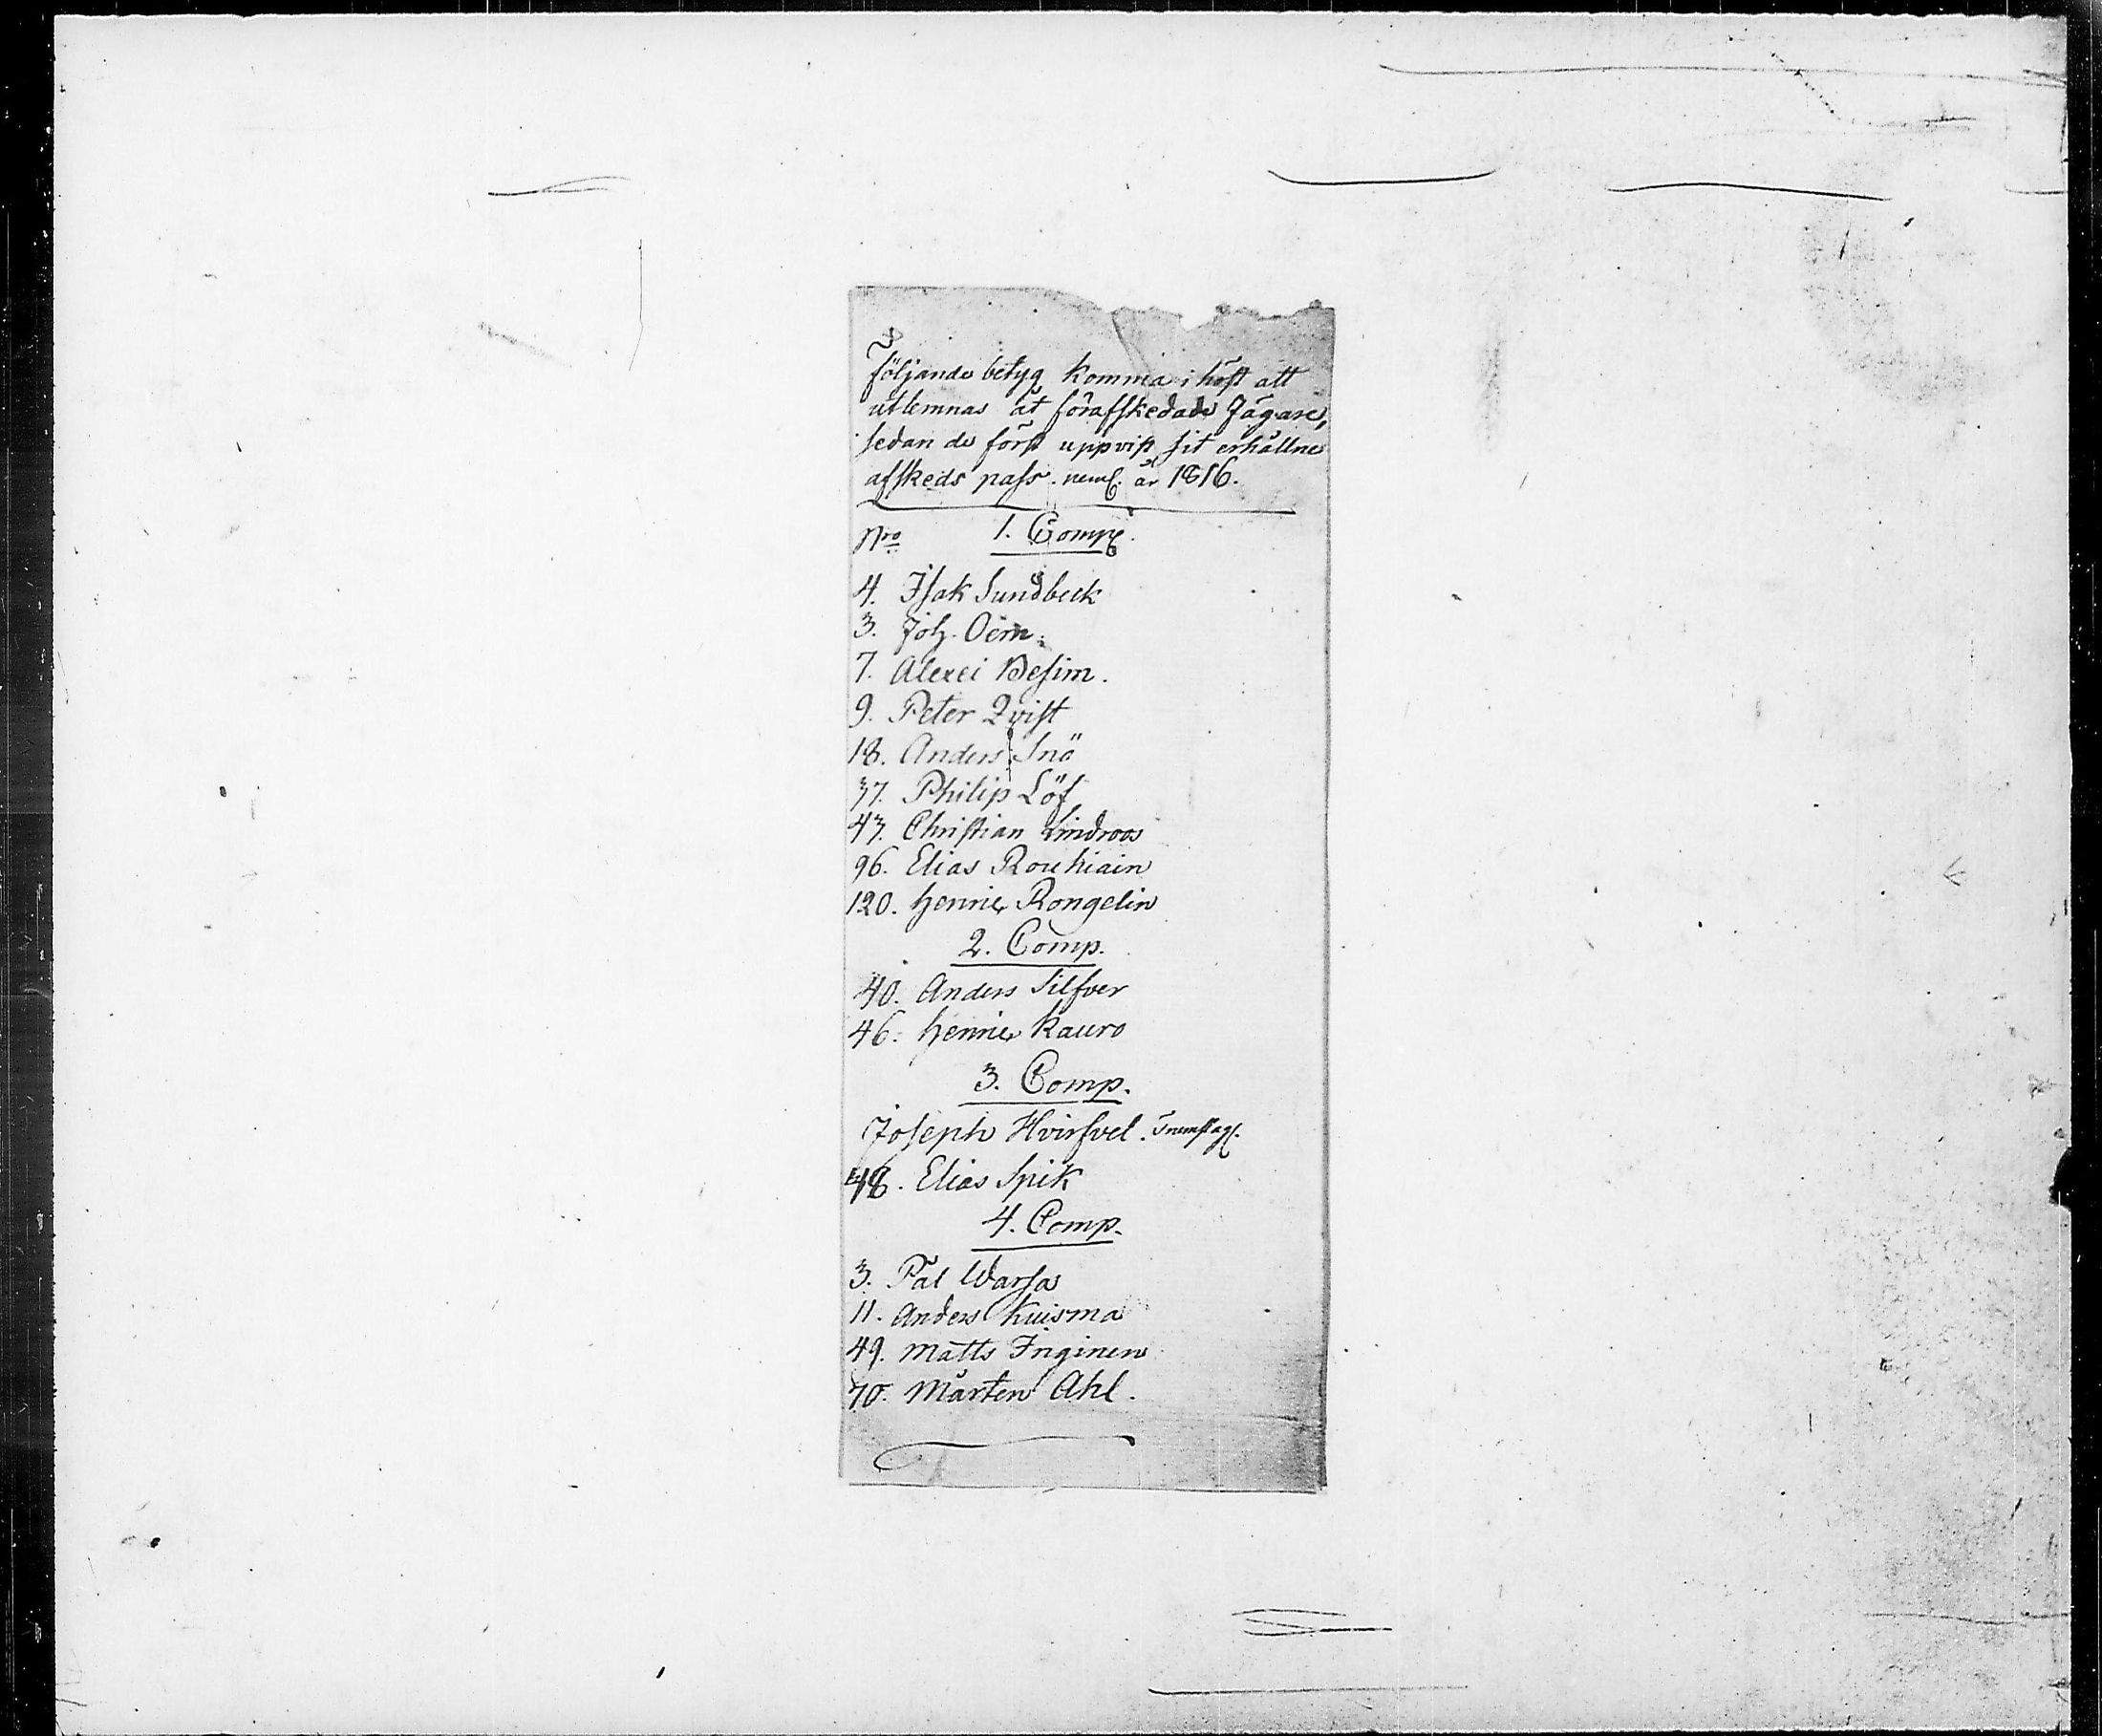 följande betyg komma i höst att
utlemnas åt förafskedade Jägare,
sedan de först uppvist sit erhållne
afskeds pass. neml. år 1816.
Nro 1. Comp.
4. Isak Sundbeck
3. Joh. Oem.
7. Alexei Desim.
9. Peter Qvist
18. Anders Snö
37. Philip Löf
43. Christian Lindroos
96. Elias Rouhiain
120. Henric Rongelin
2. Comp.
40. Anders Silfver
46. Henric Kauro
3. Comp.
Joseph Hvirfvel. Trumslag.
48. Elias Spik
4. Comp.
3. Pål Warsa
11. Anders Kuisma
49. Matts Inginen
70. Mårten Ahl.